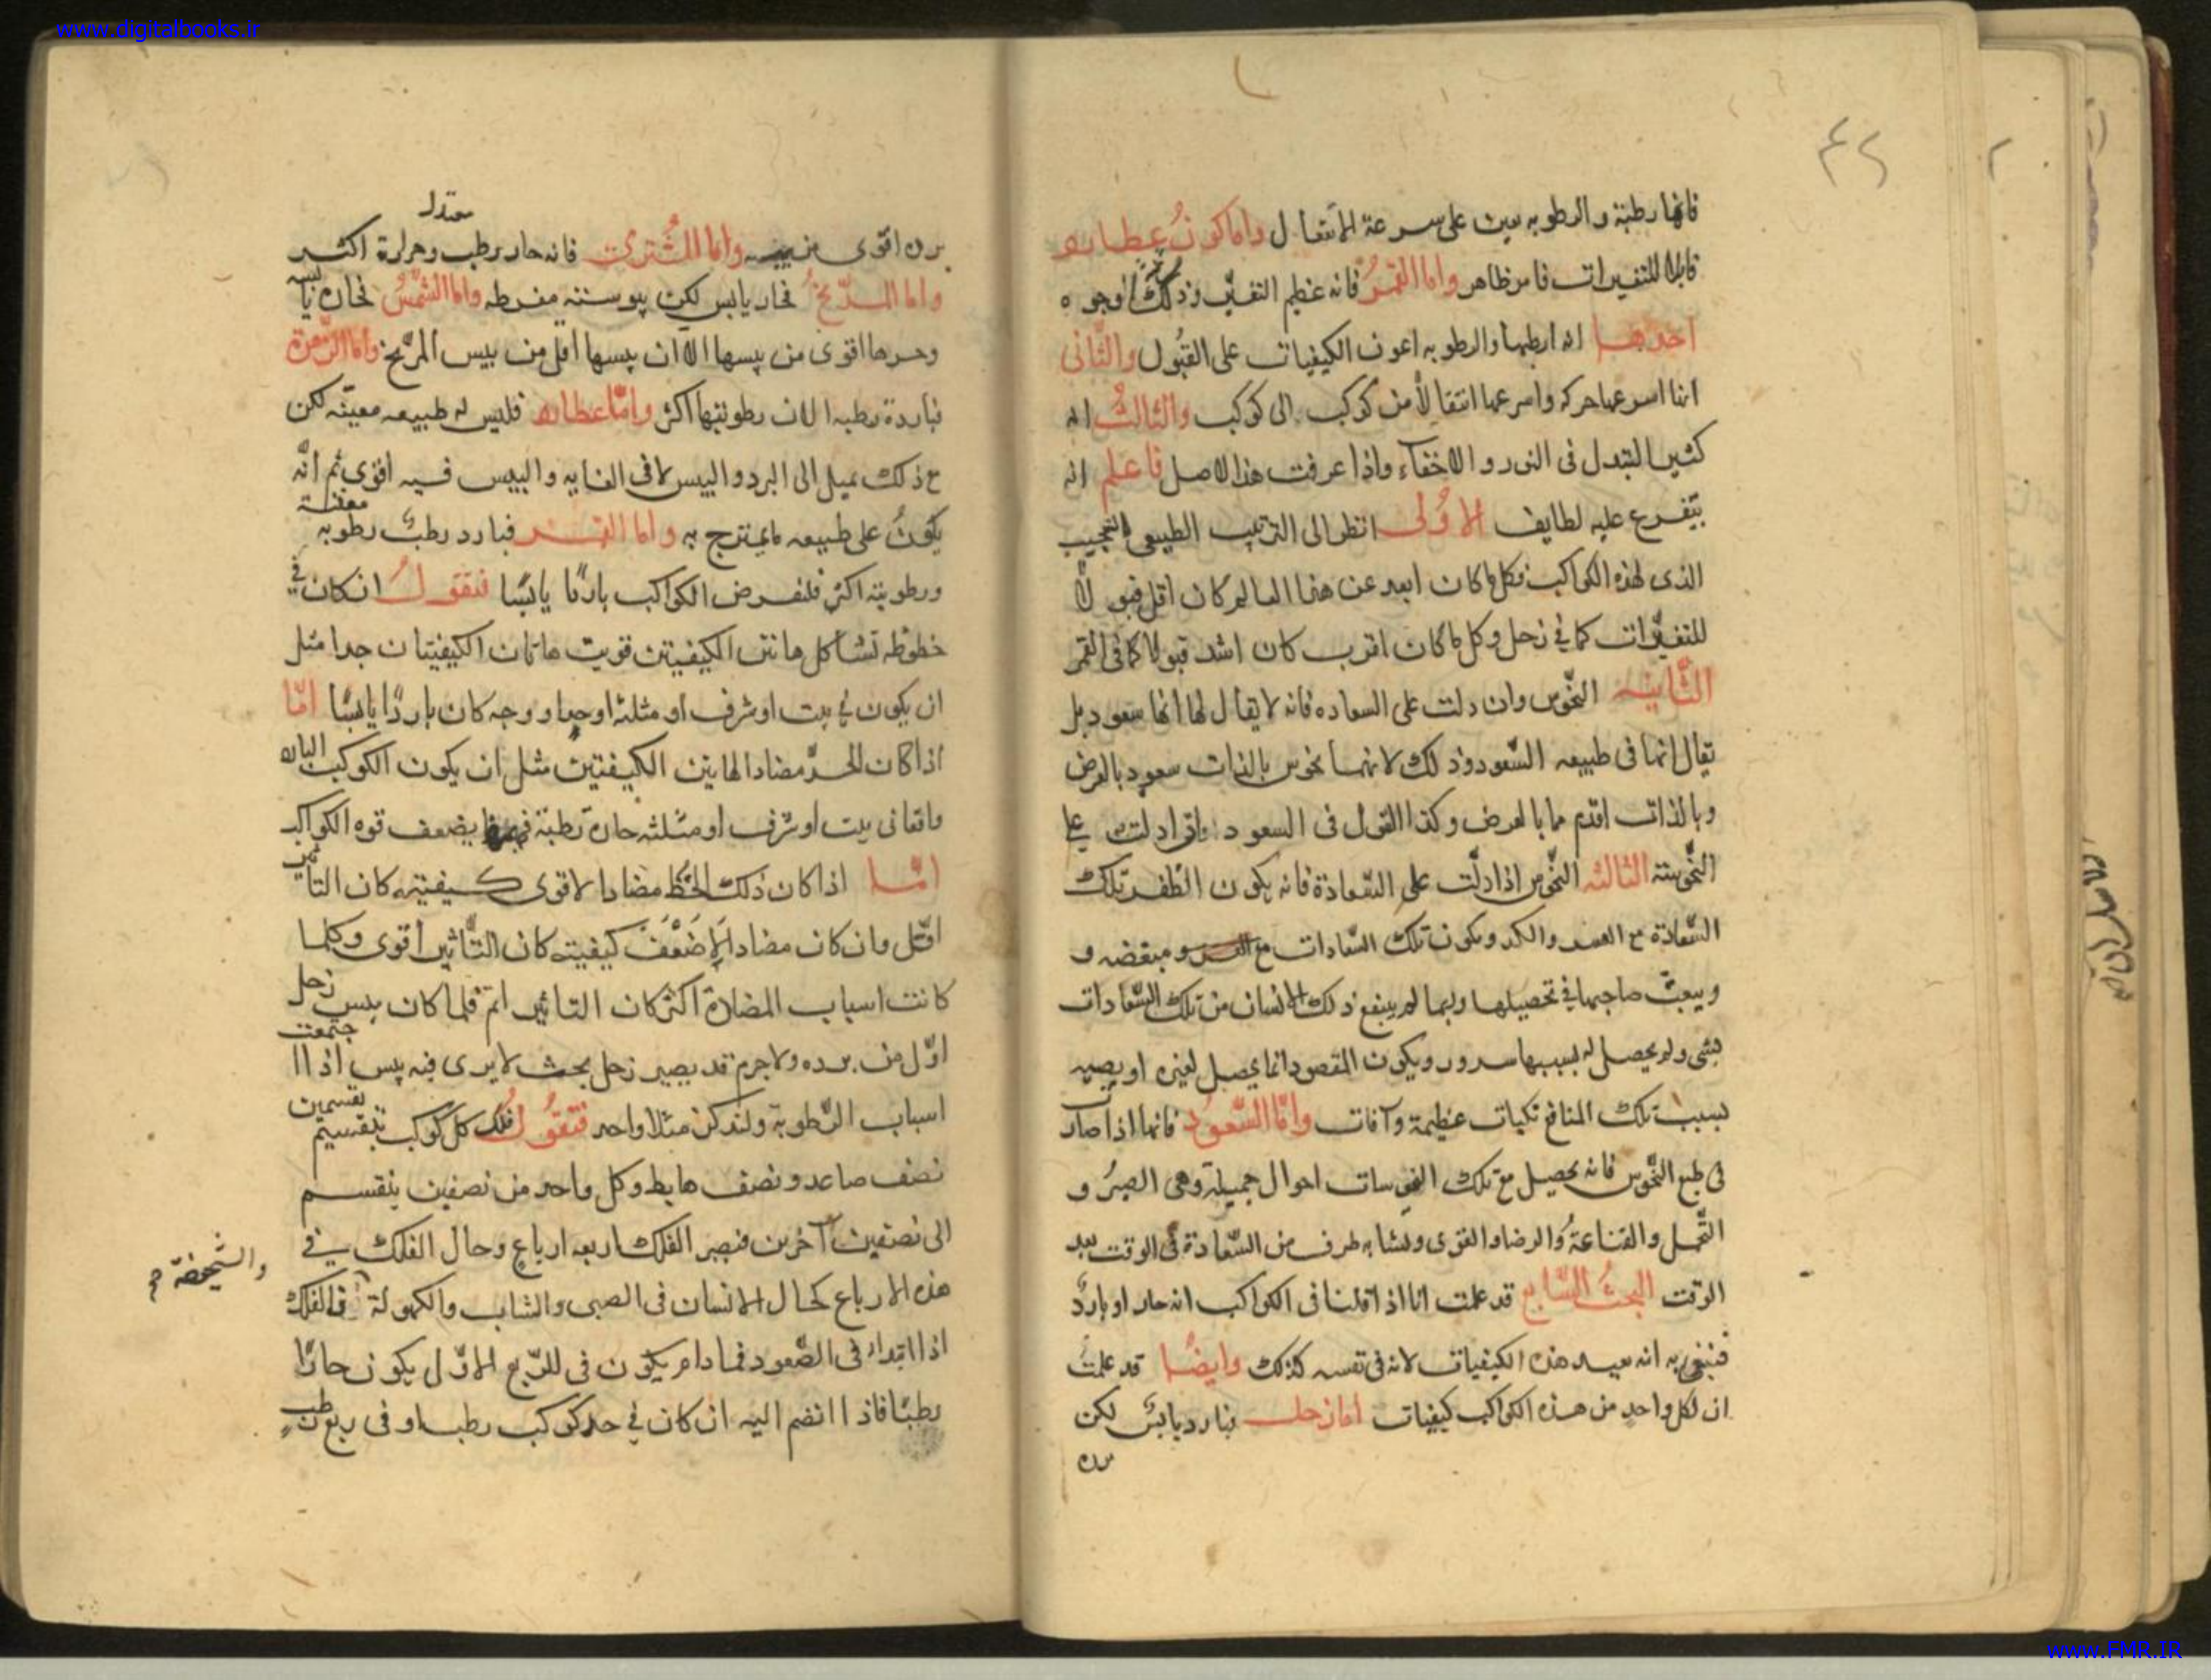 www.digitalbooks.ir
٤٢
فانها رطبة والرطوبه تعين على سرعة الانتقال واما كون عطارد
قابلا للتغيرات فامر ظاهر واما القمر فانه عظيم التغير وذلك لوجوه
احدها انه ارطبها والرطوبه اعون الكيفيات على القبُول والثاني
انها اسرعها حركه واسرعها انتقالاً من كوكب الى كوكب والثالث انه
كثير التبدل فى النور والاخفاء واذا عرفت هذا الاصل فاعلم انه
يتفرع عليه لطايف الاولى انظر الى الترتيب الطبيعى العجيب
الذى لهذه الكواكب فكل ما كان ابعد عن هذا العالم كان اقل قبولاً
للتغيرات كما في زحل وكل ما كان اقرب كان اشد قبولا كما فى القمر
الثَّانيه النحّوس وان دلت على السعاده فانه لا يقال لها انها سعود بل
يقال انها فى طبيعه السّعود وذلك لانها نحوس بالذات سعود بالعرض
وبالذات اقدم مما بالعرض وكذا القول فى السعود اذا دلت على
النّحوسة الثالثه النّحوس اذا دلّت على السّعادة فانه يكون الظفر بتلك
السّعادة مع العسر والكد ويكون تلك السّعادات مع ومبغضه و
ويتعب صاحبها في تحصيلها وربما لم ينتفع ذلك الانسان من تلك السّعادات
بشى ولم يحصل له بسببها سرور ويكون المقصود انما يحصل لغيره او يصيبه
بسبب تلك المنافع نكبات عظيمة وآفات وامّا السّعُود فانها اذا صارت
فى طبع النحّوس فانه يحصل مع تلك النحوسات احوال جميلة وهى الصبرُ و
التّحمل والقناعةُ والرضا والتقوى ولشابه طرف من السّعادة فى الوقت بعد
الوقت البحث السّابع قد علمت انا اذا قلنا فى الكواكب انه حار او باردٌ
فنعنى به انه يفيد هذه الكيفيات لا انه فى نفسه كذلك وايضاً قد علمت
ان لكل واحد من هذه الكواكب كيفيات اما زحل فبارد يابس لكن
برده
برده اقوى من يبسه واما المُشترى فانه حار رطب معتدل وحرارة اكثر
واما المريخُ فحار يابس لكن يبوسته مفرطه واما الشّمس فحاره يابسه
وحرها اقوى من يبسها الا ان يبسها اقل من يبس المرّيخ واما الزّهرة
فباردة رطبه الا ان رطوبتها اكثر وامّا عطارد فليس له طبيعه معينّه لكن
مع ذلك يميل الى البرد واليبس لا فى الغايه واليبس فيه اقوى ثم انّه
يكونُ على طبيعه ما يمتزج به واما القمر فبارد رطبٌ رطوبه معفنة
ورطوبته اكثر فلنفرض الكواكب باردًا يابسًا فنقول ان كان في
حظوظه تشاكل هاتين الكيفيتين قويت هاتان الكيفيتان جدا مثل
ان يكون في بيت او شرف او مثلثه او حد او وجه كان باردًا يابسًا امّا
اذا كان الحدّ مضادا لهاتين الكيفيتين مثل ان يكون الكوكب البارد
واقعا فى بيت او شرف او مثلثه حارة رطبة يضعف قوه الكواكب
امّا اذا كان ذلك الحظّ مضادا لاقوى كيفيته كان التأثير
اقلّ وان كان مضادا لاضَعْفَ كيفيته كان التّأثير اقوى وكلما
كانت اسباب المضادة اكثر كان التأثير اتمّ فلما كان يبس زحل
اوّل من برده ولا جرم قد يصير زحل بحيث لا يرى فيه يبس اذا اجتمعت
اسباب الرّطوبة ولنذكر مثلا واحد فنقُول فلك كل كوكب ينقسم بقسمين
نصف صاعد ونصف هابط وكل واحد من نصفين ينقسم
الى نصفين آخرين فيصير الفلك اربعه ارباع وحال الفلك في
هذه الارباع كحال الانسان فى الصبى والشاب والكهولة فالفلك
والشيخوخة صح
اذا ابتدا فى الصّعود فما دام يكون فى الرّبع الاوّل يكون حارًا
رطبًا فاذا انضم اليه ان كان في حد كوكب رطب او فى ربع رطب
www.FMR.IR